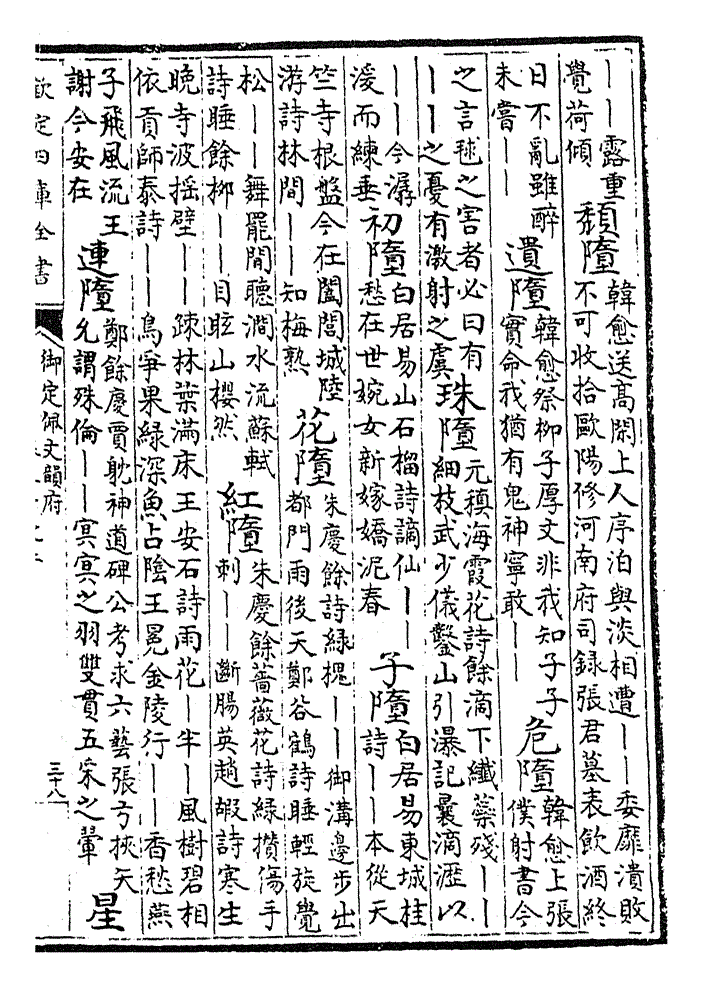 ——露重
覺荷傾
頹墮
韓愈送高閑上人序泊與淡相遭——委靡潰敗
不可收拾歐陽修河南府司錄張君墓表飲酒終
日不亂雖醉
未嘗——
遺墮
韓愈祭柳子厚文非我知子子
實命我猶有鬼神寧敢——
危墮
韓愈上張
僕射書今
之言毬之害者必曰有
——之憂有激射之虞
珠墮
元稹海霞花詩餘滴下纖蘂殘——
細枝武少儀鑿山引瀑記曩滴瀝以
——今潺
湲而練垂
初墮
白居易山石榴詩謫仙——
愁在世婉女新嫁嬌泥春
子墮
白居易東城桂
詩——本從天
竺寺根盤今在闔閭城陸
游詩林間——知梅熟
花墮
朱慶餘詩綠槐——御溝邊步出
都門雨後天鄭谷鶴詩睡輕旋覺
松——舞罷閒聽澗水流蘇軾
詩睡餘柳——目眩山櫻然
紅墮
朱慶餘薔薇花詩綠攢傷手
刺——斷腸英趙嘏詩寒生
晚寺波搖壁——疎林葉滿床王安石詩雨花—半—風樹碧相
依貢師泰詩——鳥爭果綠深魚占陰王冕金陵行——香愁燕
子飛風流王
謝今安在
連墮
鄭餘慶賈耽神道碑公考求六藝張弓挾矢
允謂殊倫——冥冥之羽雙貫五采之翬
星
欽定四庫全書
御定佩文韻府
三十八